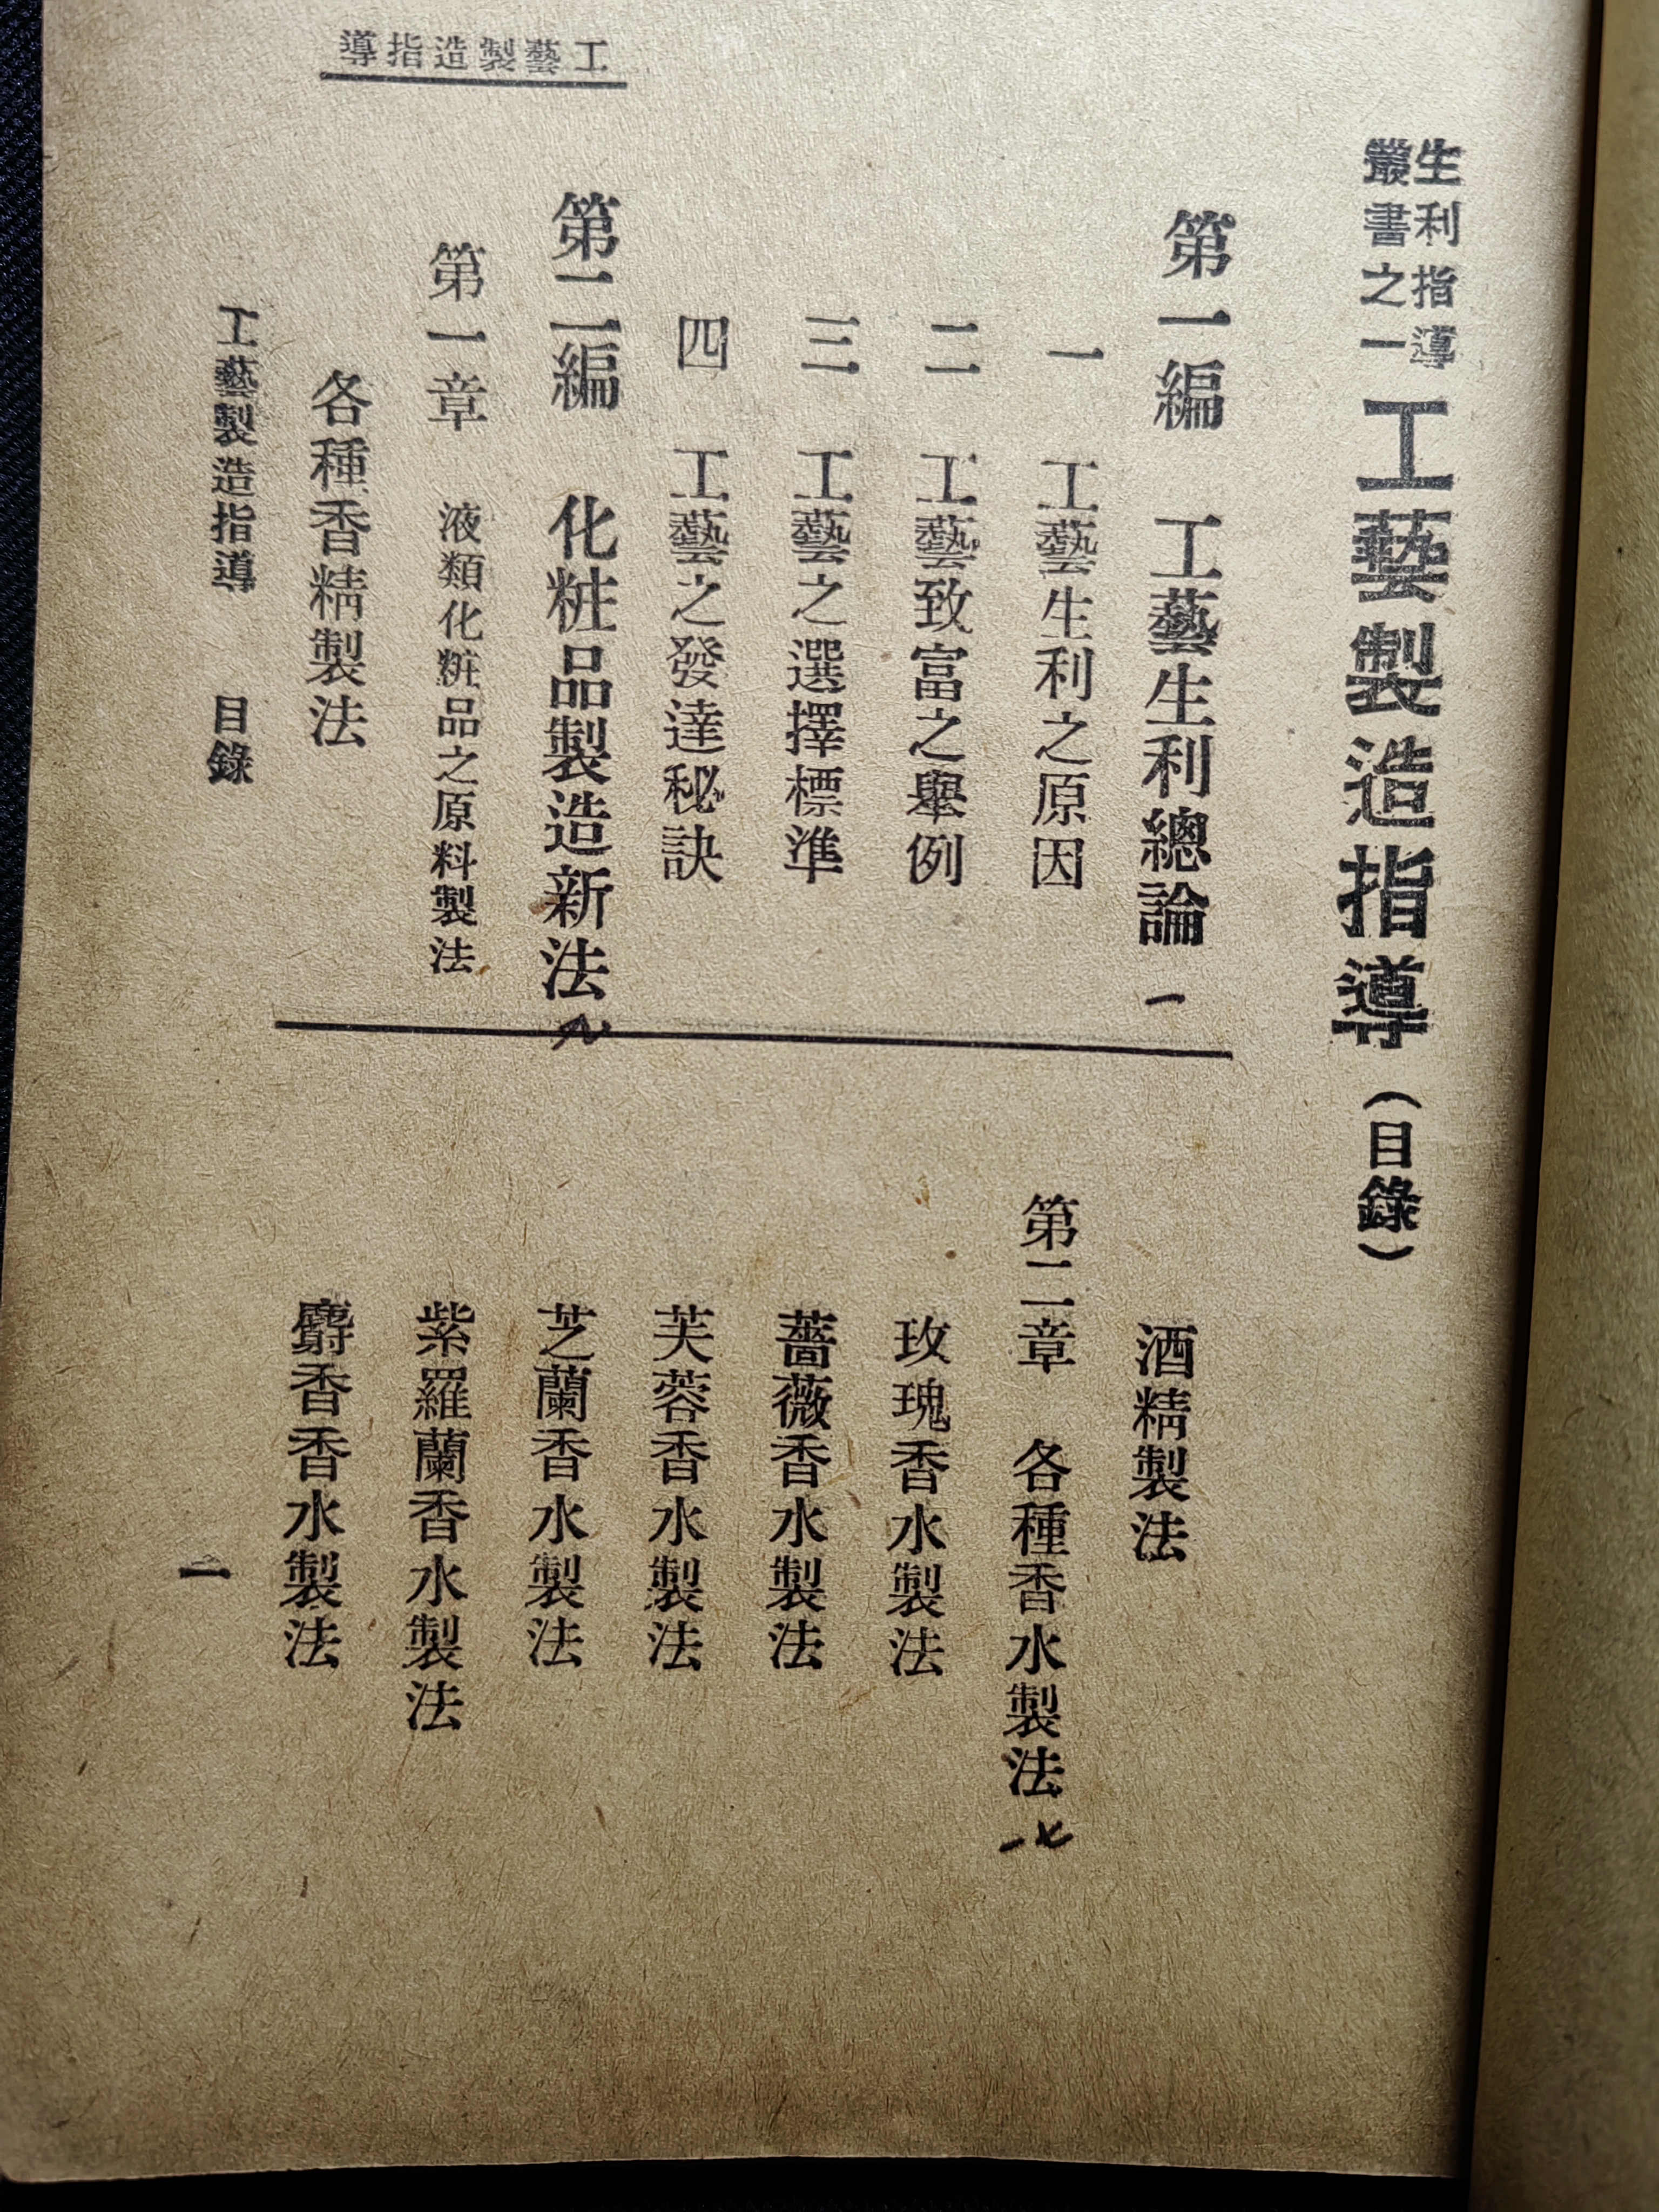 工藝製造指導
生利指導
叢書之一
工藝製造指導(目錄)
第一編 工藝生利總論 一
一 工藝生利之原因
二 工藝致富之舉例
三 工藝之選擇標準
四 工藝之發達秘訣
第二編 化粧品製造新法
第一章 液類化粧品之原料製法
各種香精製法
酒精製法
第二章 各種香水製法
玫瑰香水製法
薔薇香水製法
芙蓉香水製法
芝蘭香水製法
紫羅蘭香水製法
麝香香水製法
工藝製造指導 目錄